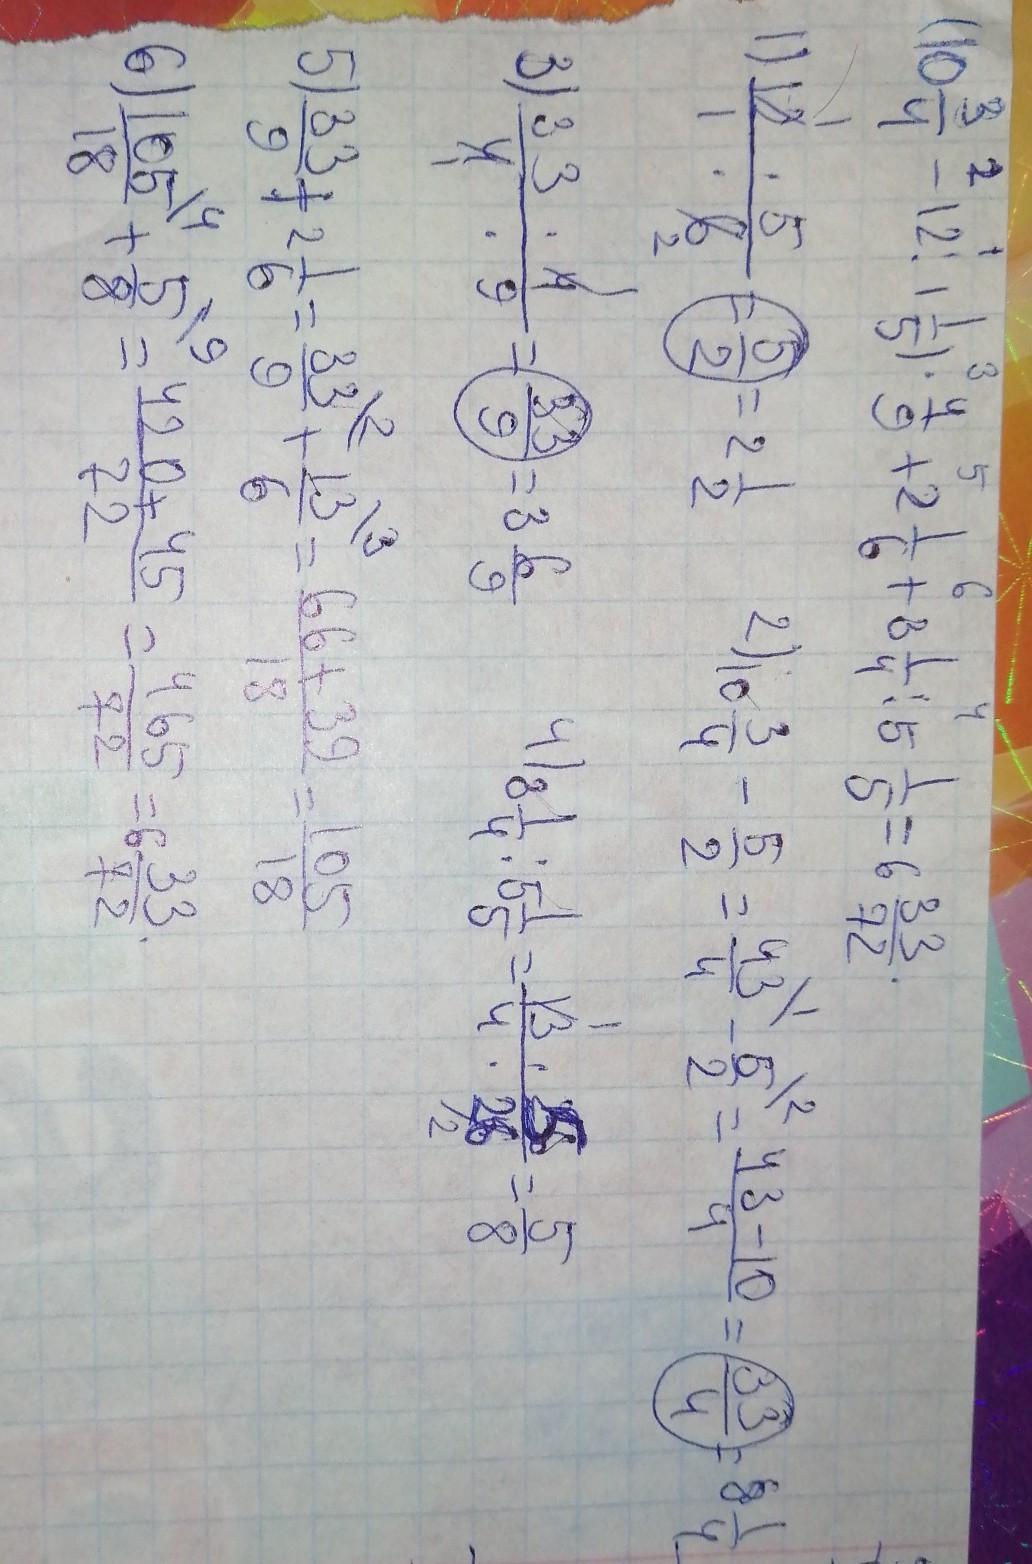 (10 3/4 - 12 : 1 1/5) · 4/9 + 2 1/6 + 3 1/4 : 5 1/5 = 6 33/72.
1) (12 · 5)/(1 · 6) = 5/2 = 2 1/2
2) 10 3/4 - 5/2 = 43/4 \1 - 5/2 \2 = (43-10)/4 = 33/4 = 8 1/4
3) (33 · 4)/(4 · 9) = 33/9 = 3 6/9
4) 3 1/4 : 5 1/5 = (13 · 5)/(4 · 26) = 5/8
5) 33/9 + 2 1/6 = 33/9 \2 + 13/6 \3 = (66+39)/18 = 105/18
6) 105/18 \4 + 5/8 \9 = (420+45)/72 = 465/72 = 6 33/72.